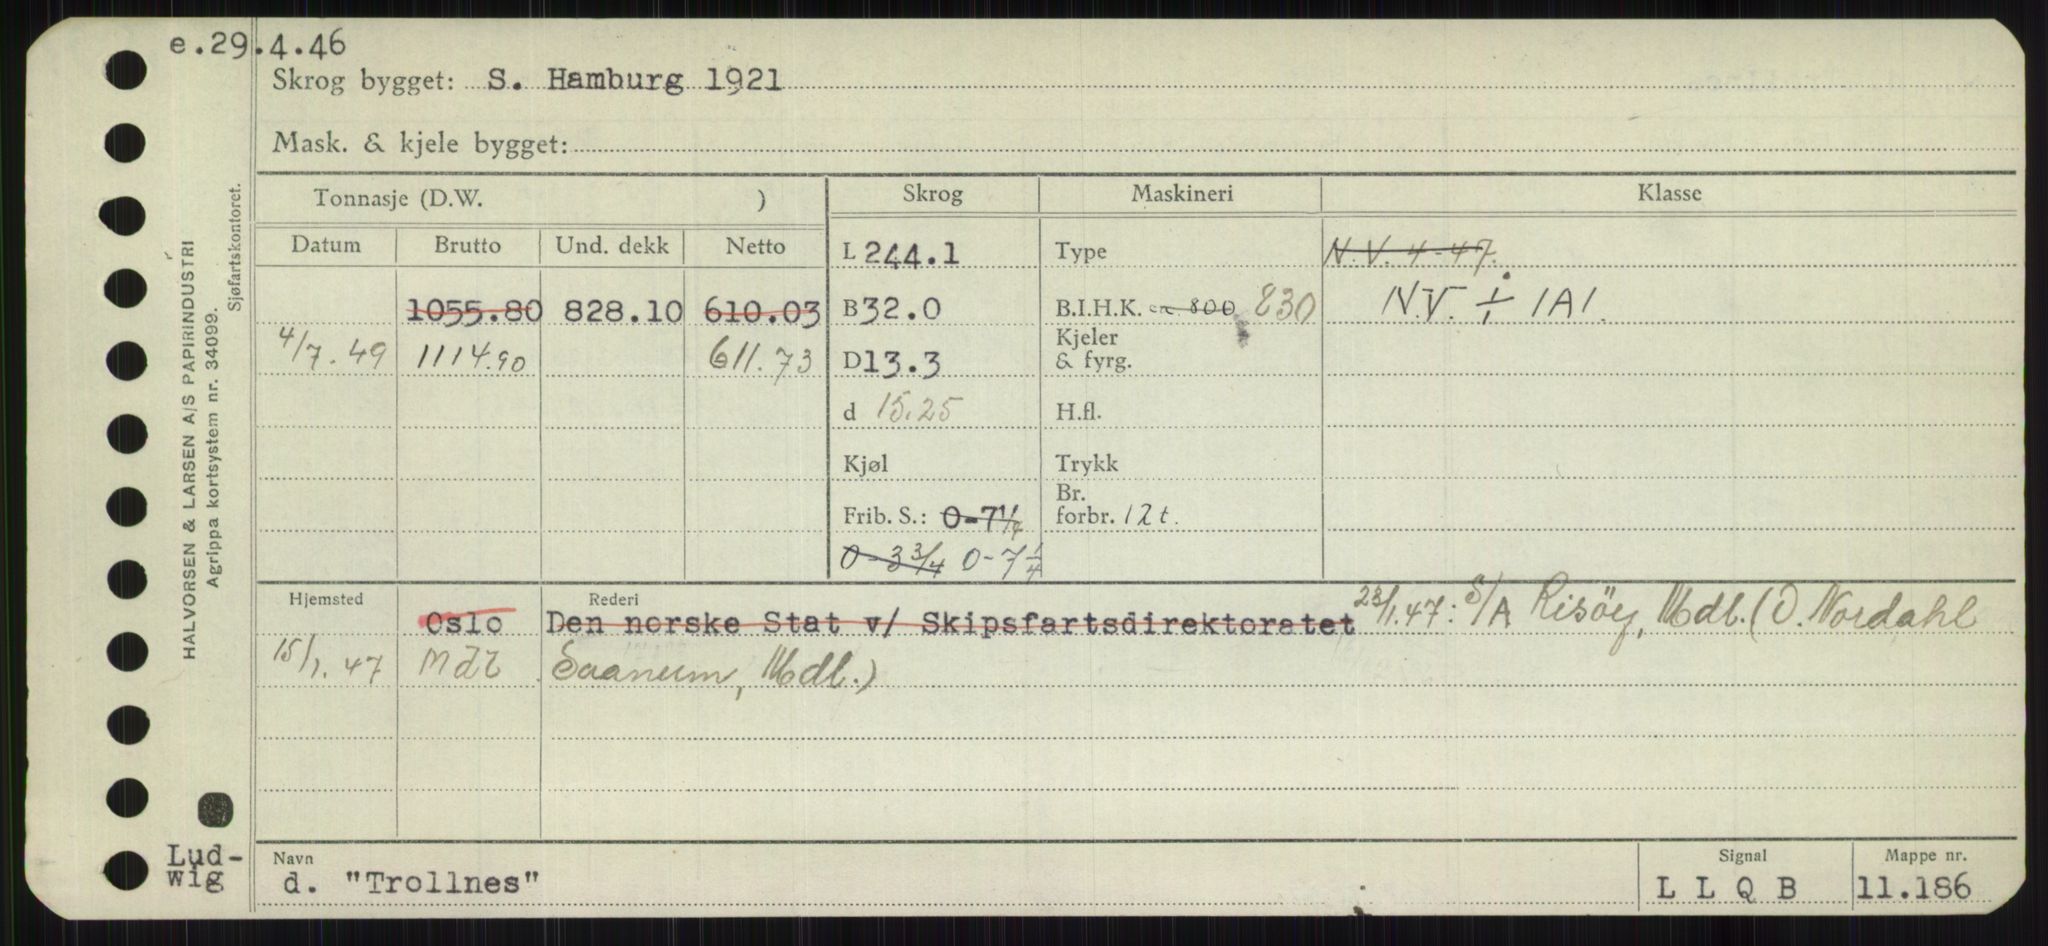 e.29.4.46
Skrog bygget: S. Hamburg 1921
Mask. & kjele bygget:
Tonnasje (D.W. ) Skrog Maskineri Klasse
Datum Brutto Und. dekk Netto L 244.1 Type N.V. 4-47.
1055.80 828.10 610.03 B 32.0 B.I.H.K. 800 830 N.V. ÷ 1A1.
4/7.49 1114.90 611.73 D 13.3 Kjeler & fyrg.
d 15.25 H.fl.
Kjøl Trykk
Frib. S.: 0-7 1/4 Br. forbr. 12 t.
0-3 3/4 0-7 1/4
Hjemsted Rederi
Oslo Den norske Stat v/ Skipsfartsdirektoratet 23/1.47: S/A Risöy, Mdl. (O. Nordahl
15/1.47 Mdl Saanum, Mdl.)
Navn Signal Mappe nr.
d. "Trollnes" L L Q B 11.186
Lud-
wig
HALVORSEN & LARSEN A/S PAPIRINDUSTRI
Agrippa kortsystem nr. 34099.
Sjøfartskontoret.